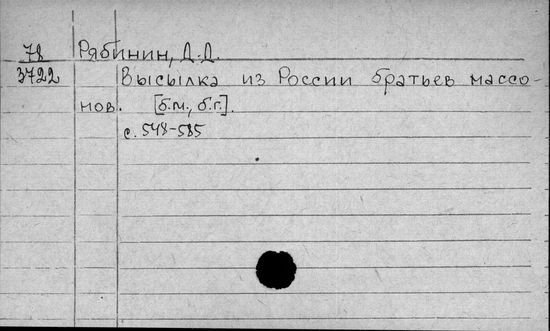 78 Рябинин, Д.Д.
3722 Высылка из России братьев массо-
нов. [б.м., б.г.].
с. 548-585